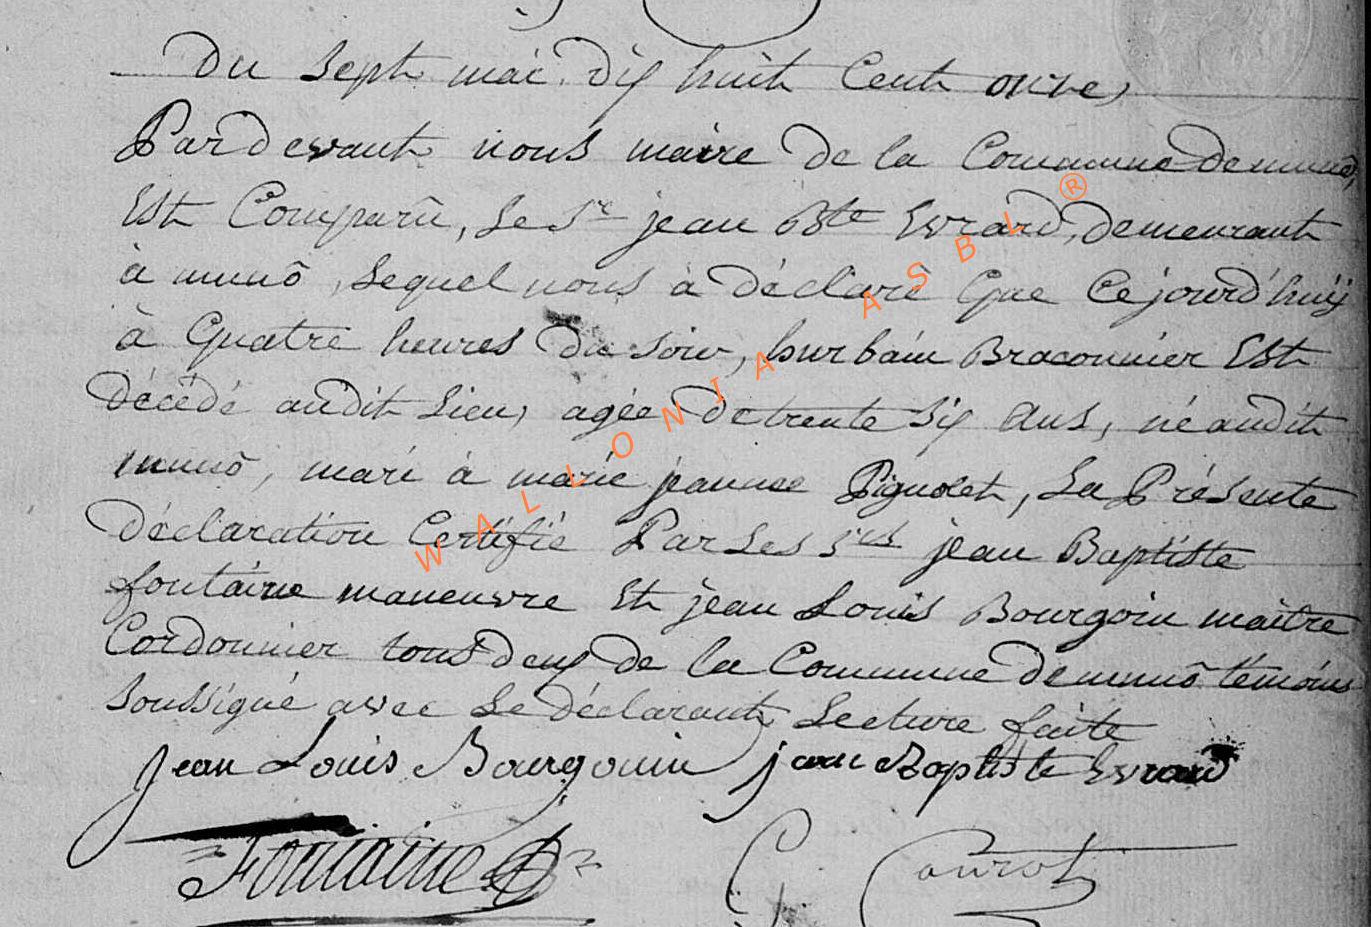 Du Sept mai dix huit Cent onze,
Pardevant nous maire de la Commune de munô,
Est Comparû, Le Sr jean Bte Evrard, demeurant
à munô, Lequel nous à déclaré Que Cejourd'huij
à Quatre heures du soir, hurbain Braconnier Est
décédé audit Lieu, agée de trente Six ans, né audit
munô, mari à marie jeanne Pignolet, La Présente
déclaration Certifié Par Les Srs jean Baptiste
fontaine maneuvre Et jean Louis Bourgoin maitre
Cordonnier tous deux de la Commune de munô témoins
Soussigné avec Le déclarant, Lecture faite
Jean Louis Bourgouin jean Baptiste Evrard
Fontaine
WALLONIA ASBL ®